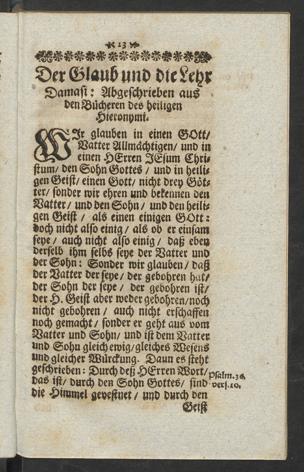 13
Der Glaub und die Lehr
Damasi: Abgeschrieben aus
den Bücheren des heiligen
Hieronymi.
WIr glauben in einen GOtt/
Vatter Allmächtigen/ und in
einen HErren JEsum Chri-
stum/ den Sohn Gottes/ und in heili-
gen Geist/ einen Gott/ nicht drey Göt-
ter/ sonder wir ehren und bekennen den
Vatter/ und den Sohn/ und den heili-
gen Geist/ als einen einigen GOtt:
doch nicht also einig/ als ob er einsam
seye/ auch nicht also einig/ daß eben
derselb ihm selbs seye der Vatter und
der Sohn: Sonder wir glauben/ daß
der Vatter der seye/ der gebohren hat/
der Sohn der seye/ der gebohren ist/
der H. Geist aber weder gebohren/ noch
nicht gebohren/ auch nicht erschaffen
noch gemacht/ sonder er geht aus vom
Vatter und Sohn/ und ist dem Vatter
und Sohn gleich ewig/ gleiches Wesens
und gleicher Würckung. Dann es steht
geschrieben: Durch deß HErren Wort/
das ist/ durch den Sohn Gottes/ sind
die Himmel gevestnet/ und durch den
Geist
Psalm. 36.
vers. 10.